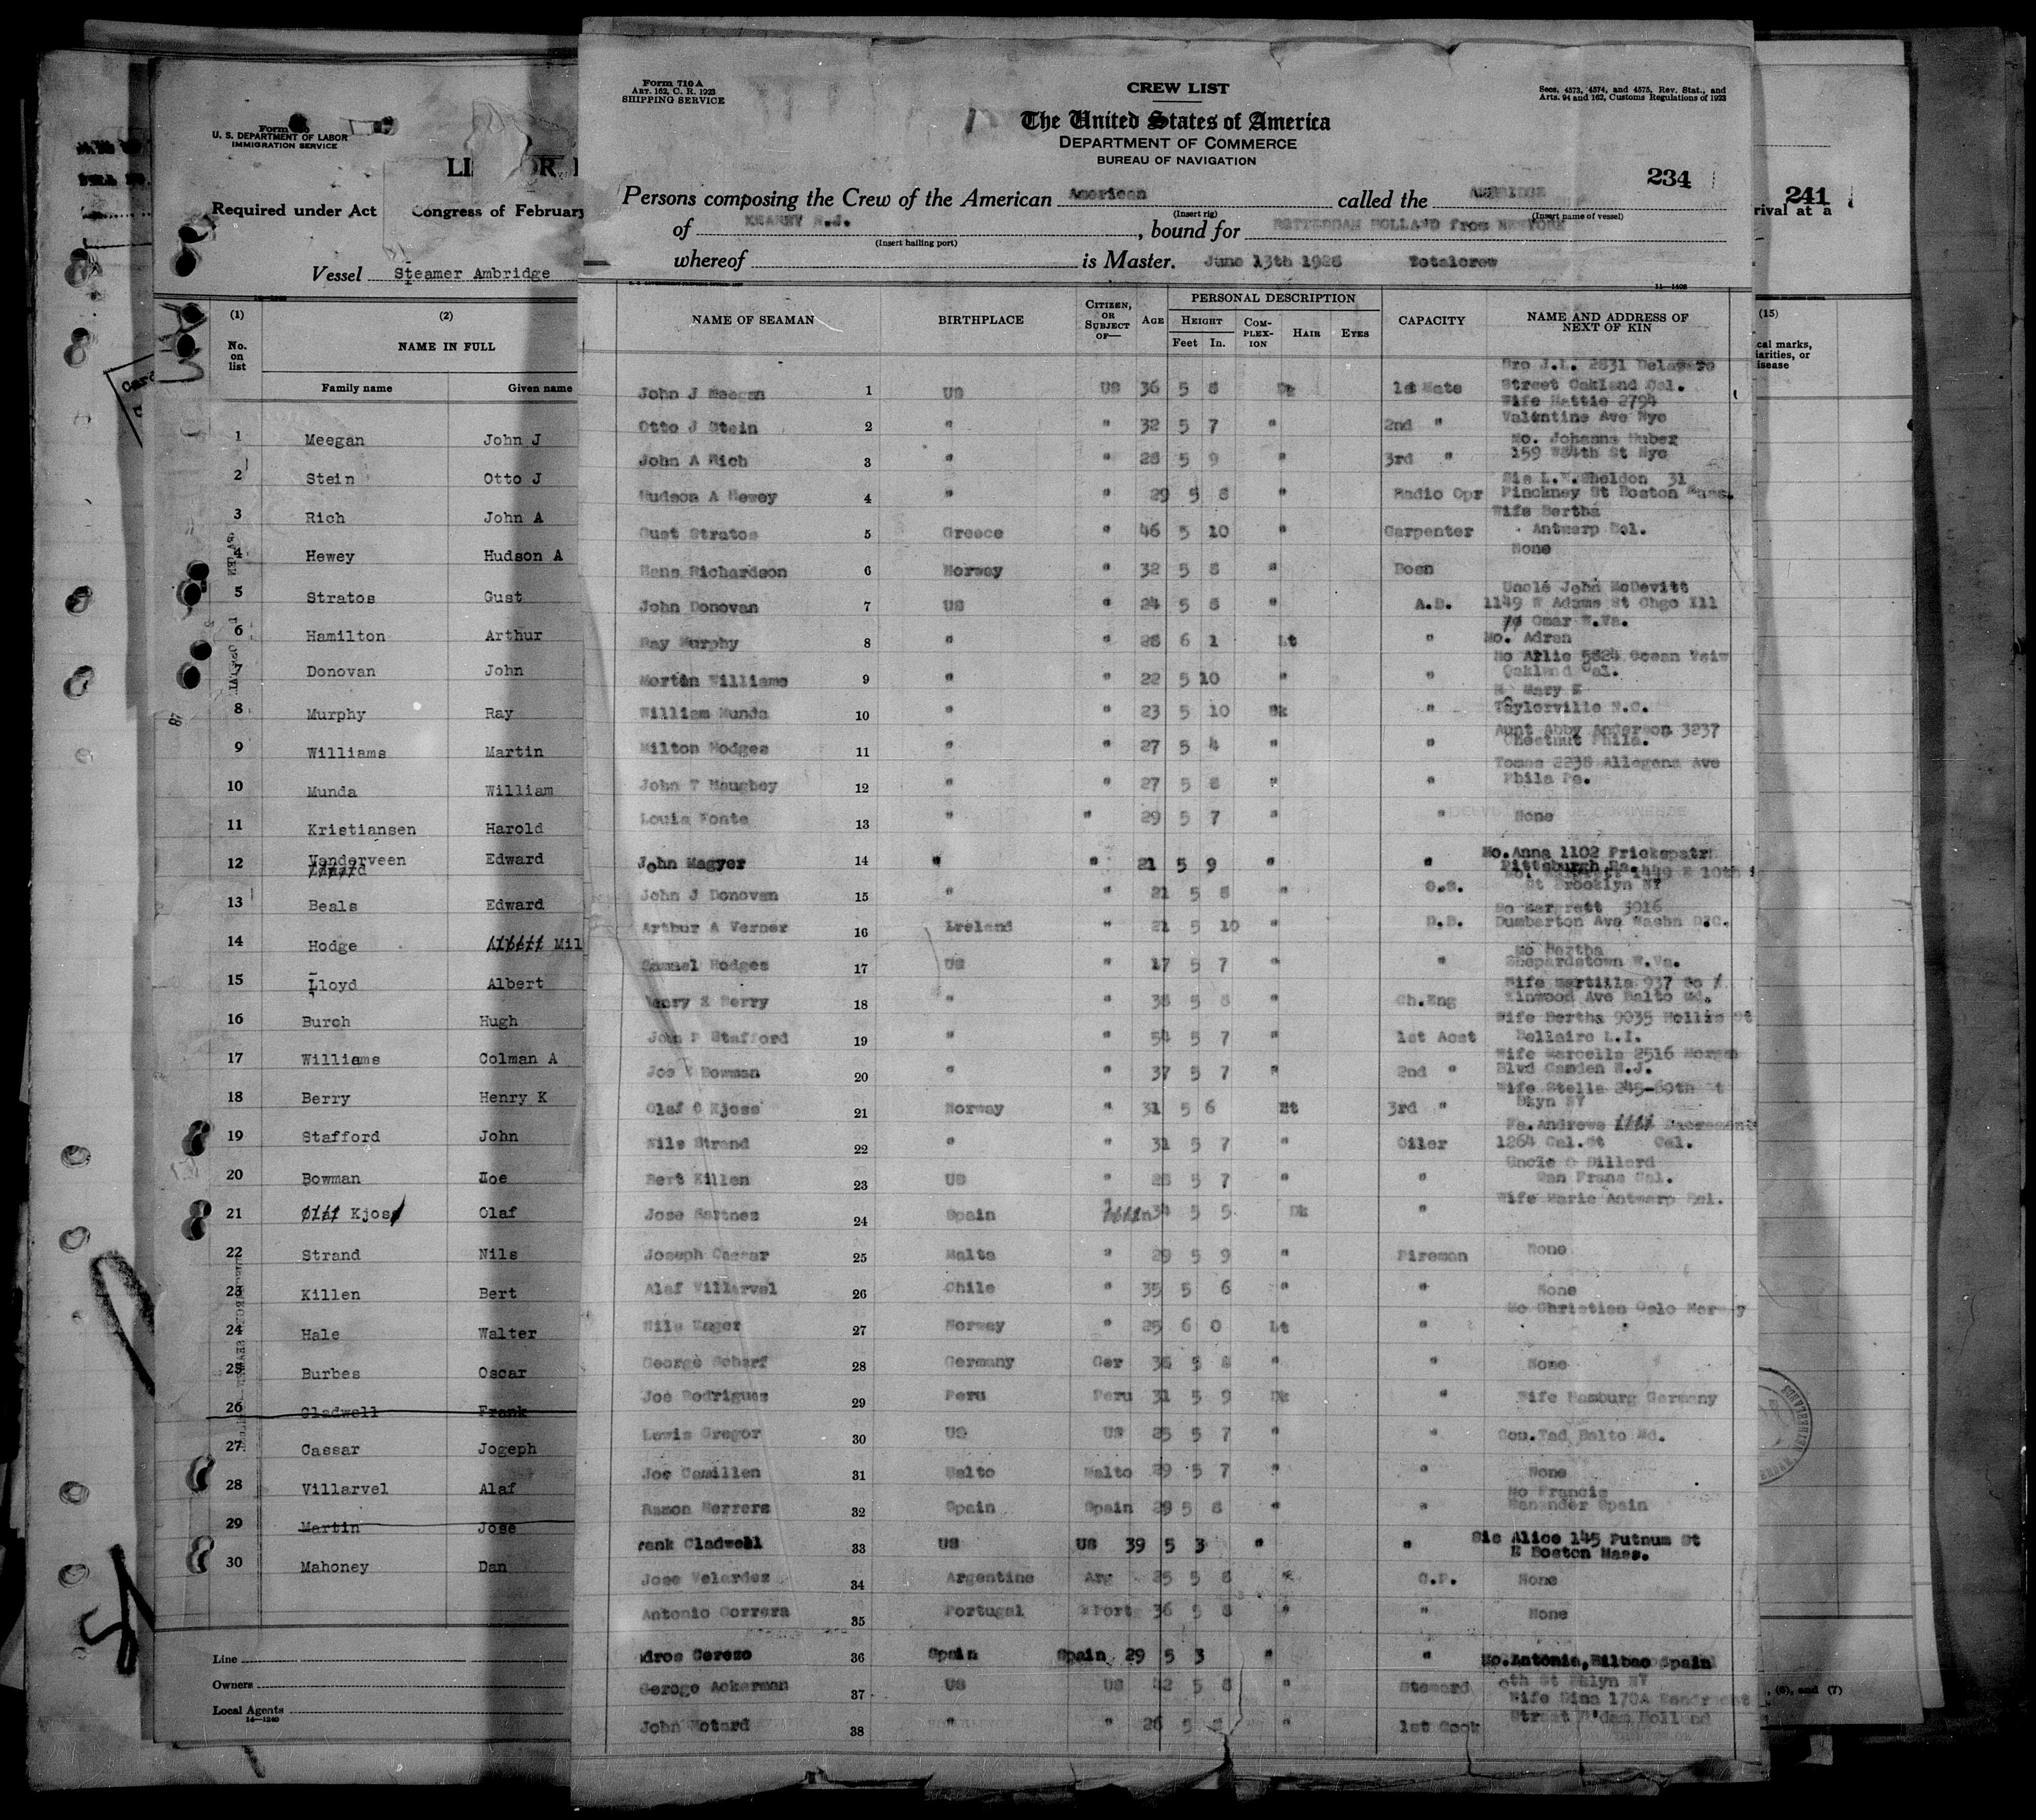 Form 710 A
ART. 162, C. R. 1923
SHIPPING SERVICE
CREW LIST
Secs. 4573, 4574, and 4575, Rev. Stat., and
Arts. 94 and 162, Customs Regulations of 1923
The United States of America
DEPARTMENT OF COMMERCE
BUREAU OF NAVIGATION
234
Persons composing the Crew of the American American called the AMBRIDGE
(Insert rig) (Insert name of vessel)
of KEARNY N.J. , bound for ROTTERDAM HOLLAND from NEWYORK
(Insert hailing port)
whereof is Master. June 13th 1928 Totalcrew
11—1408
NAME OF SEAMAN BIRTHPLACE CITIZEN, OR SUBJECT OF— AGE PERSONAL DESCRIPTION CAPACITY NAME AND ADDRESS OF NEXT OF KIN
HEIGHT COM-PLEX-ION HAIR EYES
Feet In.
Bro J.L. 2831 Delaware
John J Meegan 1 US US 36 5 8 Dk 1st Mate Street Oakland Cal.
Wife Hattie 2794
Otto J Stein 2 " " 32 5 7 " 2nd " Valentine Ave Nyc
Mo. Johanna Huber
John A Rich 3 " " 28 5 9 " 3rd " 159 W84th St Nyc
Sis L.W.Sheldon 31
Hudson A Hewey 4 " " 29 5 8 " Radio Opr Pinckney St Boston Mass.
Wife Bertha
Gust Stratos 5 Greece " 46 5 10 " Carpenter Antwerp Bel.
None
Hans Richardson 6 Norway " 32 5 8 " Bosn
Uncle John McDevitt
John Donovan 7 US " 24 5 8 " A.B. 1149 W Adams St Chgo Ill
Omar W.Va.
Ray Murphy 8 " " 28 6 1 Lt " Mo. Adren
Mo Arlie 5824 Ocean Veiw
Mortin Williams 9 " " 22 5 10 " " Oakland Cal.
Mary E
William Munda 10 " " 23 5 10 Dk " Taylorville N.C.
Aunt Abby Anderson 3237
Milton Hodges 11 " " 27 5 4 " " Chestnut Phila.
Tomas 2238 Allegana Ave
John T Haughey 12 " " 27 5 8 " " Phila Pa.
Louis Fonte 13 " " 29 5 7 " " None
Mo.Anna 1102 Frickspatr
John Magyer 14 " " 21 5 9 " " Pittsburgh Pa.
1449 E 10th
John J Donovan 15 " " 21 5 8 " O.S. St Brooklyn NY
Mo Margrett 3016
Arthur A Verner 16 Ireland " 21 5 10 " D.B. Dumberton Ave Washn D.C.
Mo Bertha
Samuel Hodges 17 US " 17 5 7 " " Shepardstown W.Va.
Wife Martilla 937 So
Henry K Berry 18 " " 38 5 8 " Ch.Eng Linwood Ave Balto Md.
Wife Bertha 9035 Hollis St
John P Stafford 19 " " 54 5 7 " 1st Asst Bellaire L.I.
Wife Marcella 2516 Morgan
Joe Bowman 20 " " 37 5 7 " 2nd " Blvd Camden N.J.
Wife Stella 245-60th St
Olaf O Kjoss 21 Norway " 31 5 6 Lt 3rd " Bkyn NY
Fa.Andrews Sacrement
Nils Strand 22 " " 31 5 7 " Oiler 1264 Cal.St Cal.
Uncle O Dillard
Bert Killen 23 US " 28 5 7 " " San Frans Cal.
Wife Marie Antwerp Bel.
Jose Martnes 24 Spain 34 5 5 Dk "
Joseph Cassar 25 Malta " 29 5 9 " Fireman None
Alaf Villarvel 26 Chile " 35 5 6 " " None
Mo Christien Oslo Norway
Nils Hager 27 Norway " 25 6 0 Lt "
George Scharf 28 Germany Ger 38 5 8 " " None
Joe Rodrigues 29 Peru Peru 31 5 9 Dk " Wife Hamburg Germany
Lewis Gregor 30 US US 25 5 7 " Cou.Tad Balto Md.
Joe Camillen 31 Malto Malto 29 5 7 " " None
Mo Francis
Ramon Herrera 32 Spain Spain 29 5 8 " " Sanander Spain
rank Cladwell 33 US US 39 5 3 " " Sis Alice 145 Putnum St
E Boston Mass.
Jose Velardez 34 Argentine Arg 25 5 8 " C.P. None
Antonio Correra 35 Portugal Port 36 5 8 " " None
dros Cerezo 36 Spain Spain 29 5 3 " " Mo.Antonia,Bilbao Spain
Geroge Ackerman 37 US US 42 5 8 " Steward 6th St Bklyn NY
Wife Dina 170A
John Hotard 38 " " 26 5 " 1st Cook Street R'dam Holland
Form
U. S. DEPARTMENT OF LABOR
IMMIGRATION SERVICE
LI OR
Required under Act Congress of February
Vessel Steamer Ambridge
(1) (2)
No. on list NAME IN FULL
Family name Given name
1 Meegan John J
2 Stein Otto J
3 Rich John A
4 Hewey Hudson A
5 Stratos Gust
6 Hamilton Arthur
7 Donovan John
8 Murphy Ray
9 Williams Martin
10 Munda William
11 Kristiansen Harold
12 Vanderveen Edward
13 Beals Edward
14 Hodge Albert Mil
15 Lloyd Albert
16 Burch Hugh
17 Williams Colman A
18 Berry Henry K
19 Stafford John
20 Bowman Joe
21 Olaf Kjoss Olaf
22 Strand Nils
23 Killen Bert
24 Hale Walter
25 Burbes Oscar
26 Cladwell Frank
27 Cassar Jogeph
28 Villarvel Alaf
29 Martin Jose
30 Mahoney Dan
Line
Owners
Local Agents
14—1240
241
rival at a
(15)
cal marks,
iarities, or
isease
, (6), and (7)